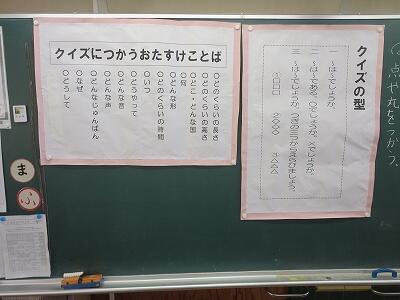 クイズにつかうおたすけことば
○どのくらいの長さ
○どのくらいの高さ
○どこ・どんな国
○何
○どんな形
○どのくらいの時間
○いつ
○どうやって
○どんな音
○どんな声
○どんなじゅんばん
○なぜ
○どうして
クイズの型
一 ～は～でしょうか。
二 ～は～である。○でしょうか、×でしょうか。
三 ～は～でしょうか。つぎの三つからえらびましょう。
①□□□ ②◇◇◇ ③△△△
点や丸をつかう。
ま
ふ